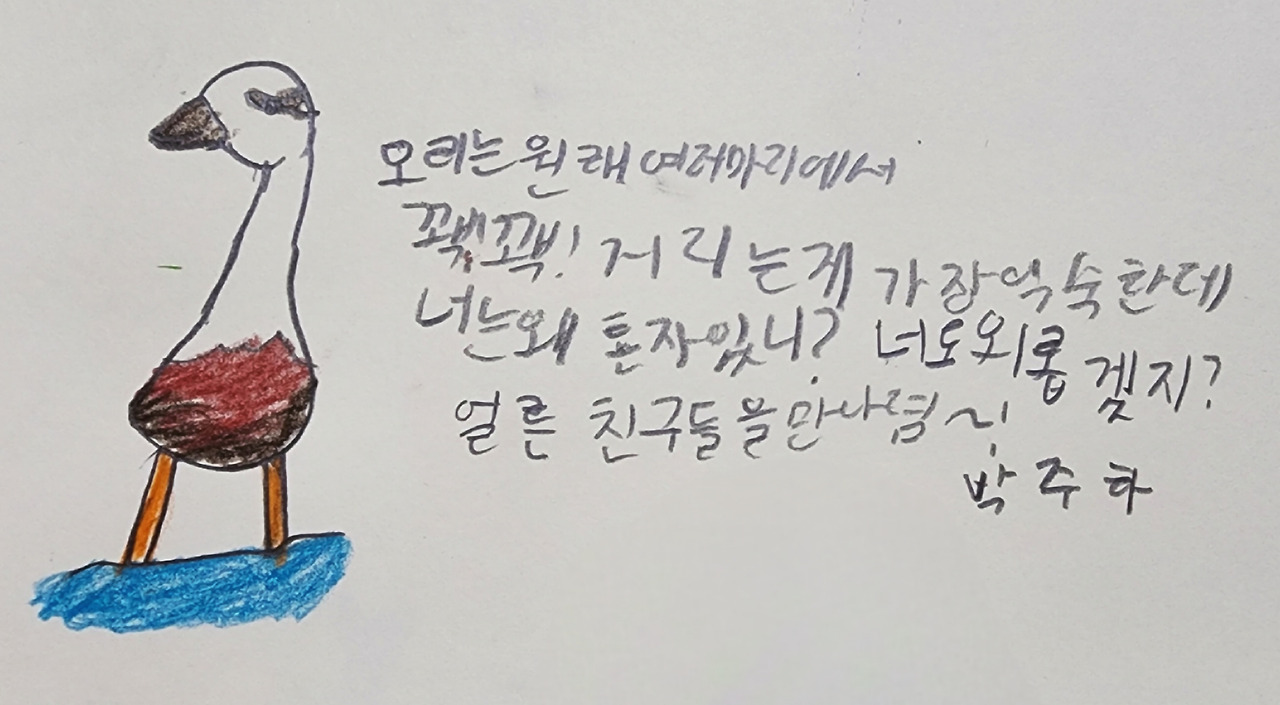 오리는 원래 여러마리에서
꽥!꽥! 거리는게 가장익숙한데
너는왜 혼자있니? 너도외롭겠지?
얼른 친구들을만나렴~!
박주하